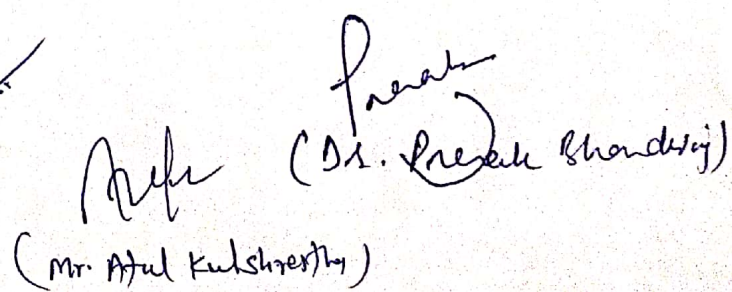 Prerak
(Dr. Prerak Bhardwaj)
Atul
(Mr. Atul Kulshrestha)